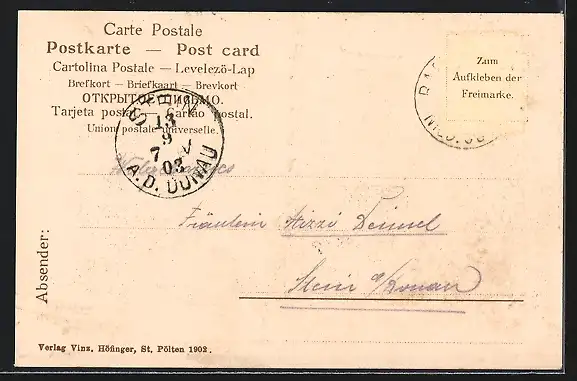 Carte Postale
Postkarte — Post card
Cartolina Postale — Levelező-Lap
Brefkort — Briefkaart — Brevkort
ОТКРЫТОЕ ПИСЬМО.
Tarjeta postal — Cartão postal.
Union postale universelle.
STEIN
13
9
7 V
03
A.D. DONAU
Zum
Aufkleben der
Freimarke.
Fräulein Mizzi
Stein a/Donau
Absender:
Verlag Vinz. Höfinger, St. Pölten 1902.